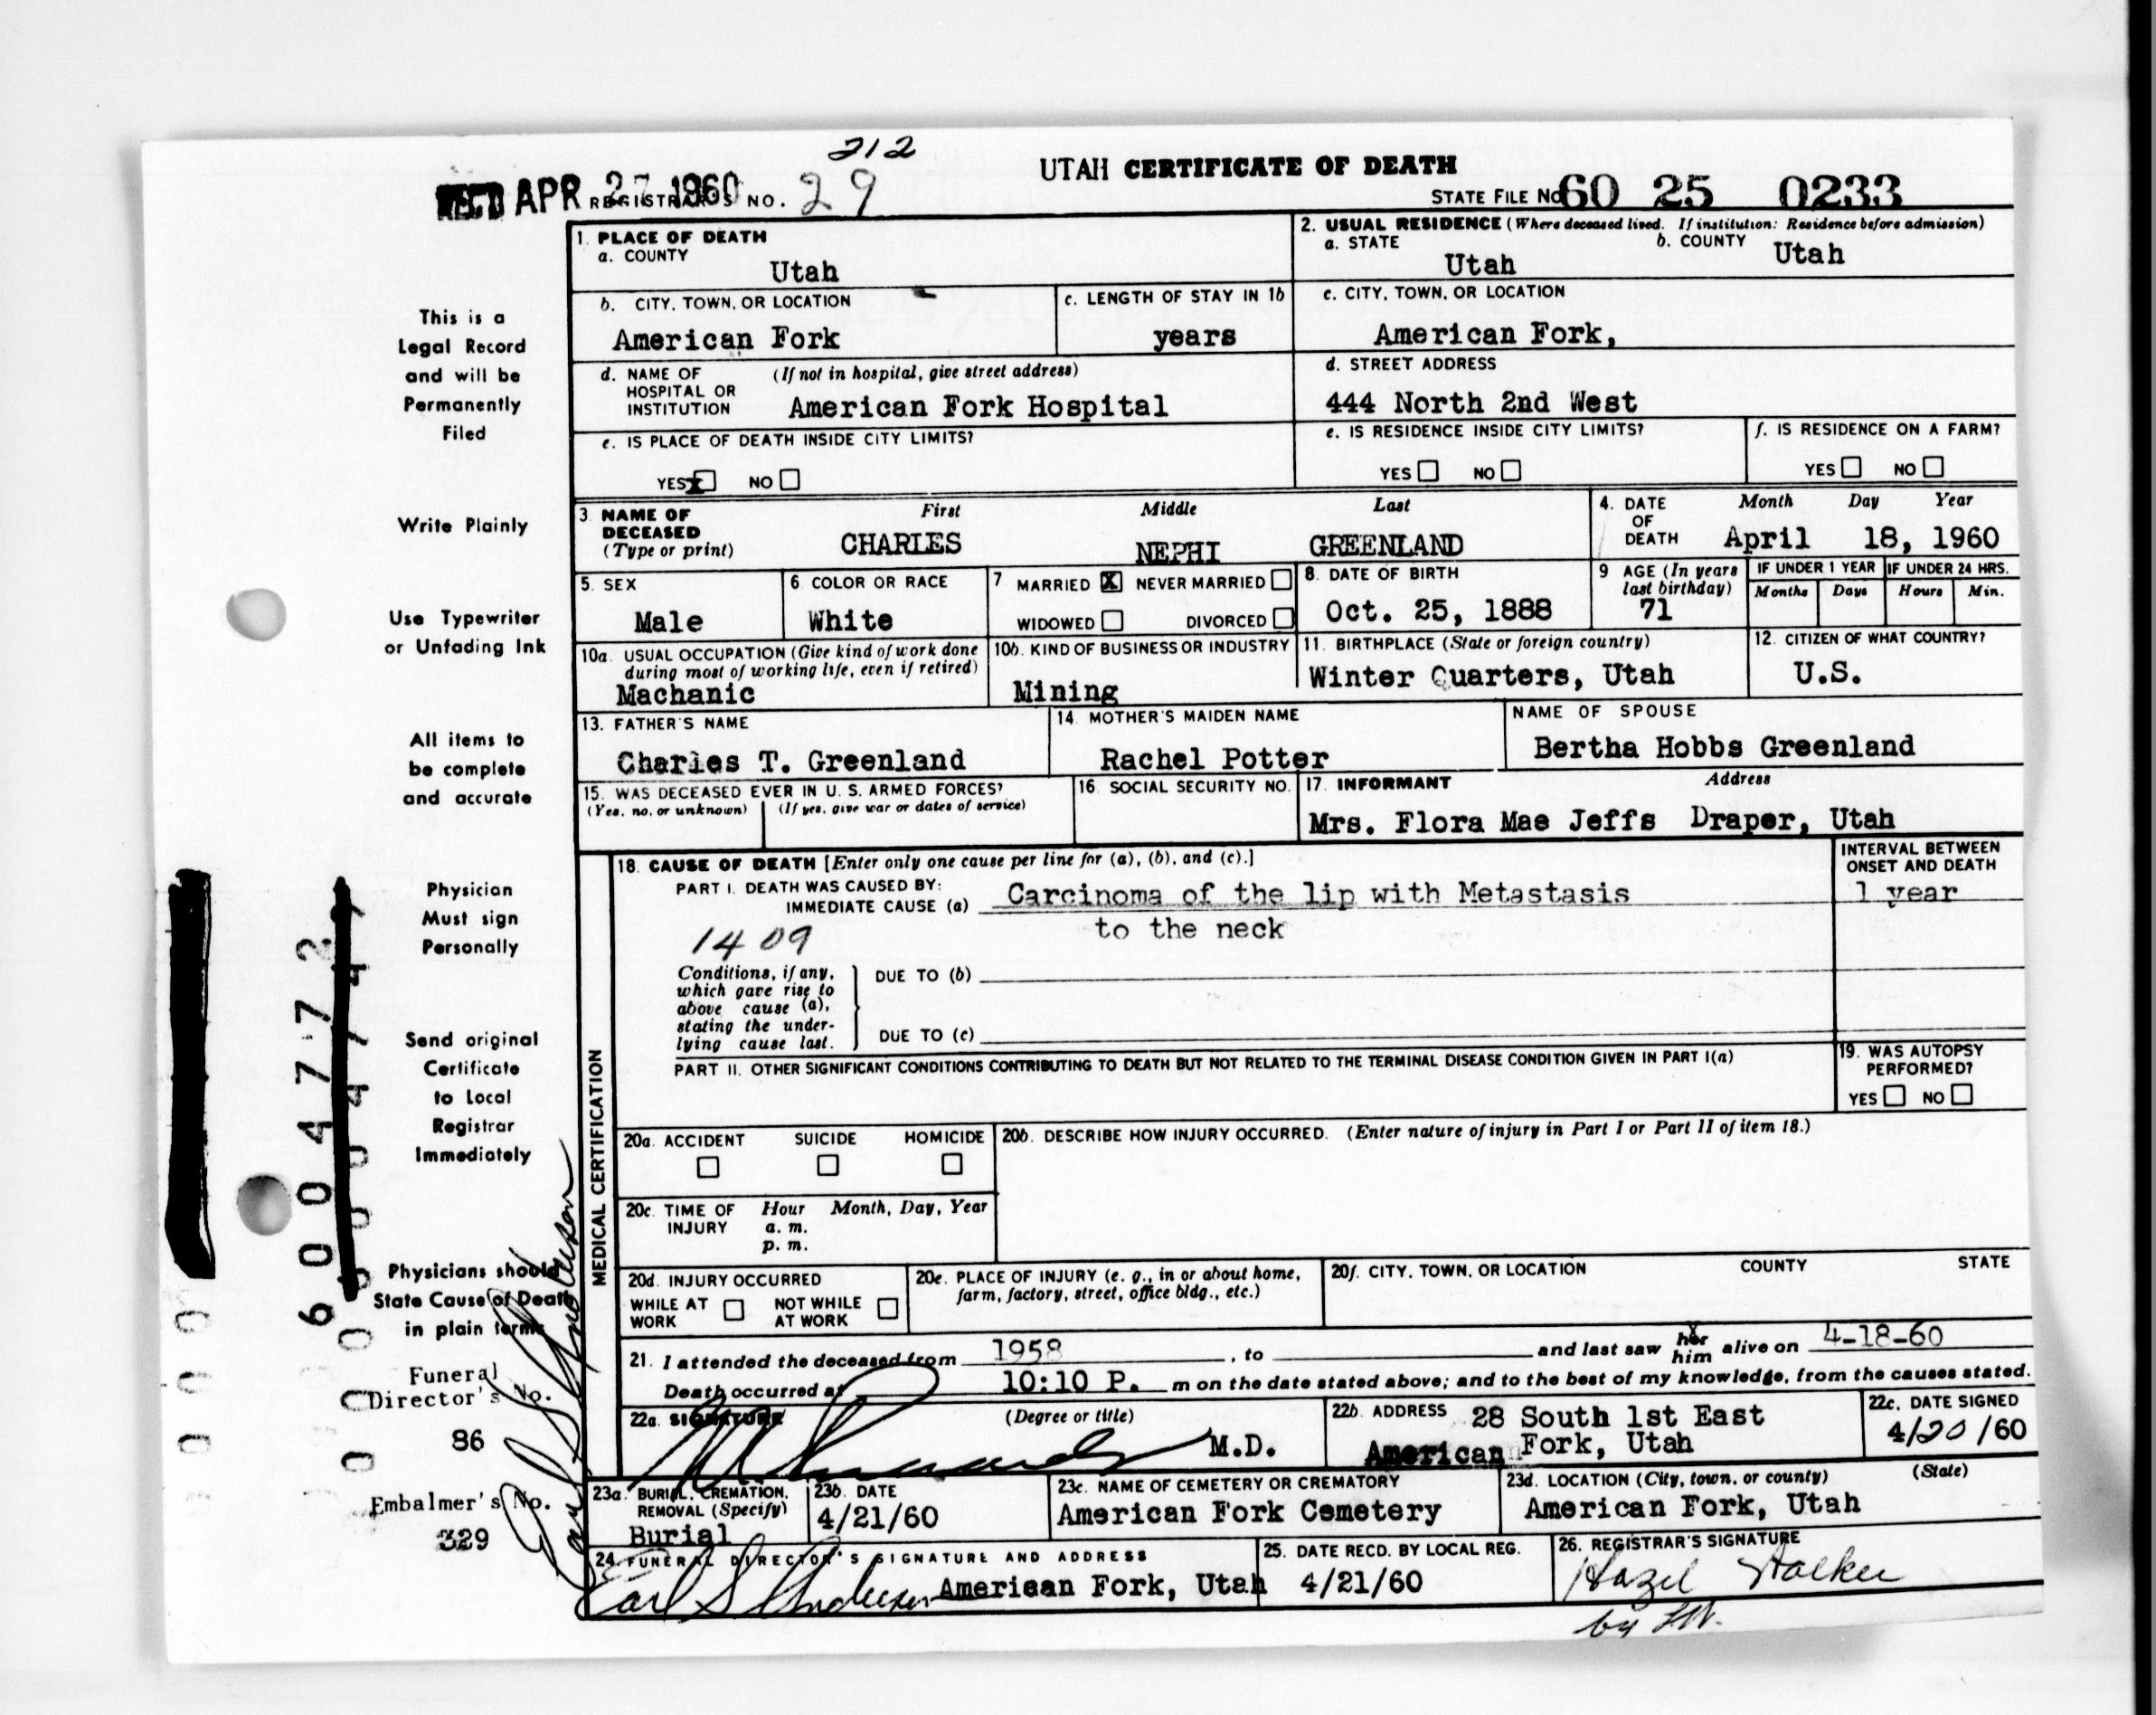 212
REC'D APR 27 1960 REGISTRAR'S NO. 29
UTAH CERTIFICATE OF DEATH
STATE FILE NO 60 25 0233
This is a
Legal Record
and will be
Permanently
Filed
Write Plainly
Use Typewriter
or Unfading Ink
All items to
be complete
and accurate
Physician
Must sign
Personally
Send original
Certificate
to Local
Registrar
Immediately
Physicians should
State Cause of Death
in plain terms
Funeral
Director's No.
86
Embalmer's No.
329
6004772
1. PLACE OF DEATH
a. COUNTY
Utah
2. USUAL RESIDENCE (Where deceased lived. If institution: Residence before admission)
a. STATE b. COUNTY
Utah Utah
b. CITY, TOWN, OR LOCATION
American Fork
c. LENGTH OF STAY IN 1b
years
c. CITY, TOWN, OR LOCATION
American Fork,
d. NAME OF (If not in hospital, give street address)
HOSPITAL OR
INSTITUTION American Fork Hospital
d. STREET ADDRESS
444 North 2nd West
e. IS PLACE OF DEATH INSIDE CITY LIMITS?
YES X NO
e. IS RESIDENCE INSIDE CITY LIMITS?
YES NO
f. IS RESIDENCE ON A FARM?
YES NO
3. NAME OF First Middle Last
DECEASED
(Type or print) CHARLES NEPHI GREENLAND
4. DATE Month Day Year
OF
DEATH April 18, 1960
5. SEX
Male
6. COLOR OR RACE
White
7 MARRIED X NEVER MARRIED
WIDOWED DIVORCED
8. DATE OF BIRTH
Oct. 25, 1888
9 AGE (In years
last birthday)
71
IF UNDER 1 YEAR IF UNDER 24 HRS.
Months Days Hours Min.
10a. USUAL OCCUPATION (Give kind of work done
during most of working life, even if retired)
Machanic
10b. KIND OF BUSINESS OR INDUSTRY
Mining
11. BIRTHPLACE (State or foreign country)
Winter Quarters, Utah
12. CITIZEN OF WHAT COUNTRY?
U.S.
13. FATHER'S NAME
Charles T. Greenland
14. MOTHER'S MAIDEN NAME
Rachel Potter
NAME OF SPOUSE
Bertha Hobbs Greenland
15. WAS DECEASED EVER IN U. S. ARMED FORCES?
(Yes, no, or unknown) (If yes, give war or dates of service)
16. SOCIAL SECURITY NO.
17. INFORMANT Address
Mrs. Flora Mae Jeffs Draper, Utah
MEDICAL CERTIFICATION
18. CAUSE OF DEATH [Enter only one cause per line for (a), (b), and (c).]
INTERVAL BETWEEN
ONSET AND DEATH
PART I. DEATH WAS CAUSED BY:
IMMEDIATE CAUSE (a) Carcinoma of the lip with Metastasis 1 year
1409 to the neck
Conditions, if any,
which gave rise to
above cause (a),
stating the under-
lying cause last.
DUE TO (b)
DUE TO (c)
PART II. OTHER SIGNIFICANT CONDITIONS CONTRIBUTING TO DEATH BUT NOT RELATED TO THE TERMINAL DISEASE CONDITION GIVEN IN PART I(a)
19. WAS AUTOPSY
PERFORMED?
YES NO
20a. ACCIDENT SUICIDE HOMICIDE
20b. DESCRIBE HOW INJURY OCCURRED. (Enter nature of injury in Part I or Part II of item 18.)
20c. TIME OF Hour Month, Day, Year
INJURY a. m.
p. m.
20d. INJURY OCCURRED
WHILE AT NOT WHILE
WORK AT WORK
20e. PLACE OF INJURY (e. g., in or about home,
farm, factory, street, office bldg., etc.)
20f. CITY, TOWN, OR LOCATION COUNTY STATE
21. I attended the deceased from 1958, to and last saw her him alive on 4-18-60
Death occurred at 10:10 P. m on the date stated above; and to the best of my knowledge, from the causes stated.
22a. SIGNATURE (Degree or title)
M.D.
22b. ADDRESS 28 South 1st East
American Fork, Utah
22c. DATE SIGNED
4/20/60
23a. BURIAL, CREMATION,
REMOVAL (Specify)
Burial
23b. DATE
4/21/60
23c. NAME OF CEMETERY OR CREMATORY
American Fork Cemetery
23d. LOCATION (City, town, or county) (State)
American Fork, Utah
24. FUNERAL DIRECTOR'S SIGNATURE AND ADDRESS
Earl S Anderson American Fork, Utah
25. DATE RECD. BY LOCAL REG.
4/21/60
26. REGISTRAR'S SIGNATURE
Hazel Walker
by